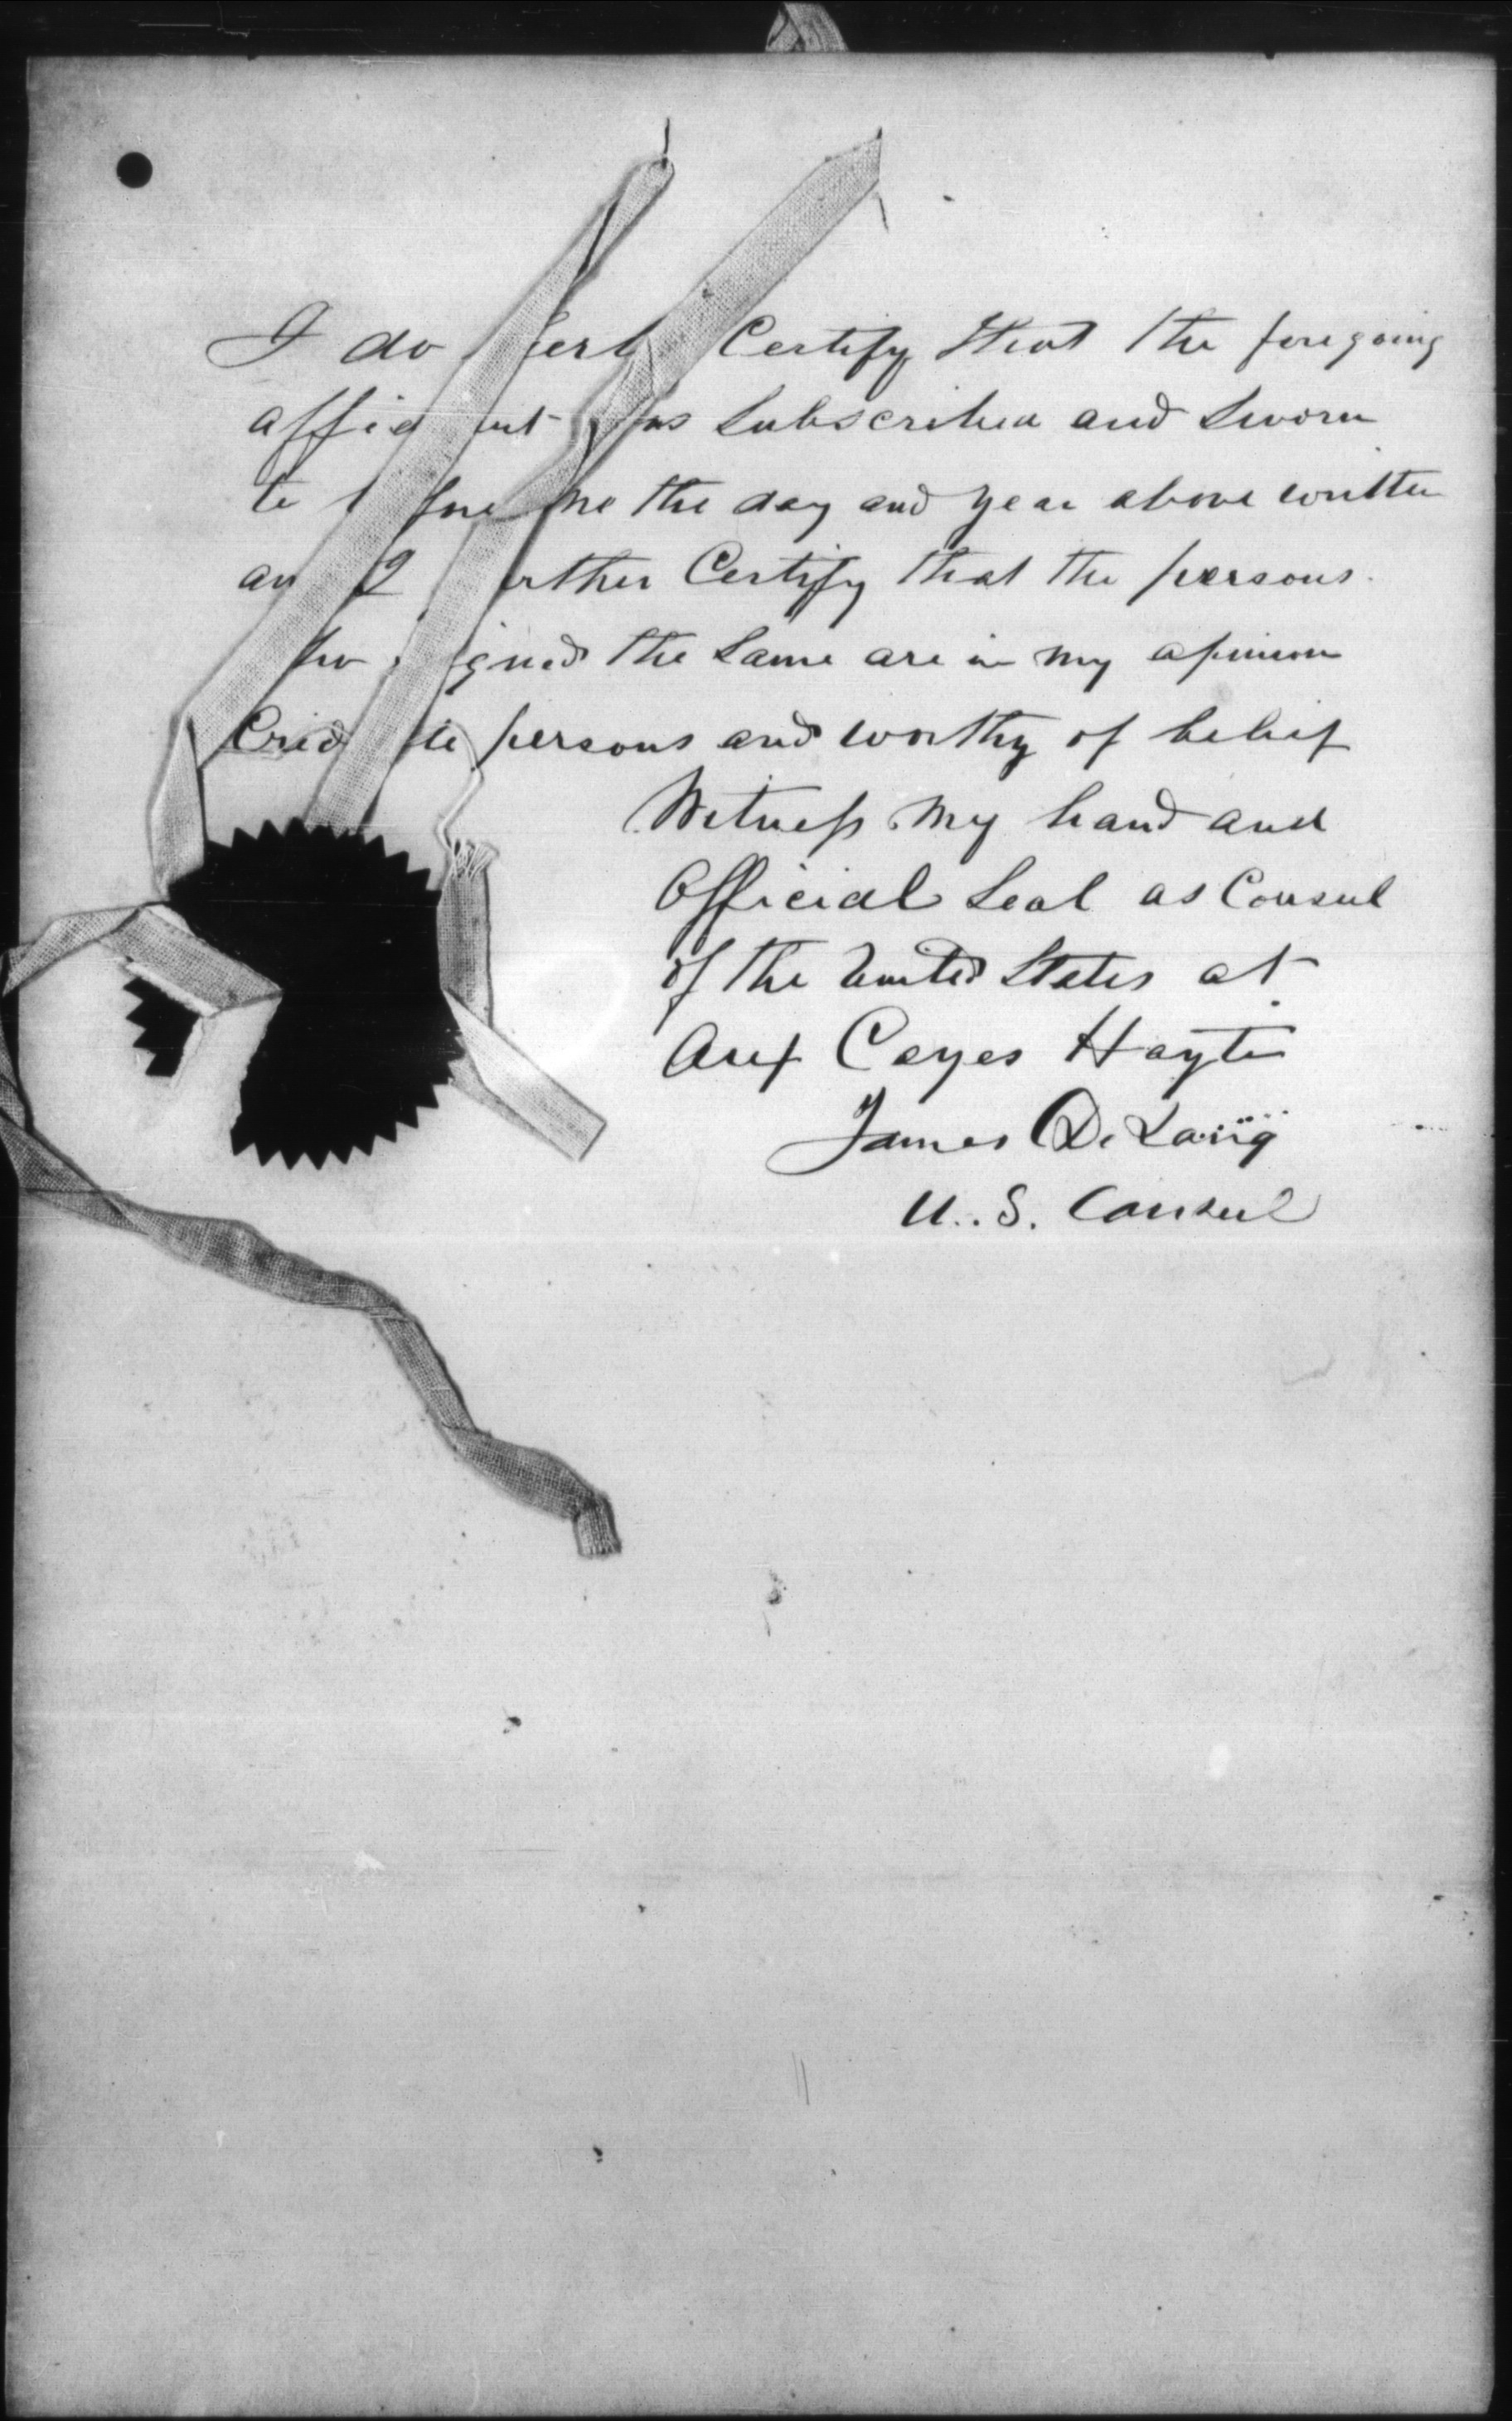 I do hereby Certify that the foregoing
affidavit was Subscribed and Sworn
to before me the day and year above written
and I further Certify that the persons
who signed the Same are in my opinion
Credible persons and worthy of belief
Witness my hand and
Official Seal as Consul
of the United States at
Aux Cayes Hayti
James De Long
U.S. Consul